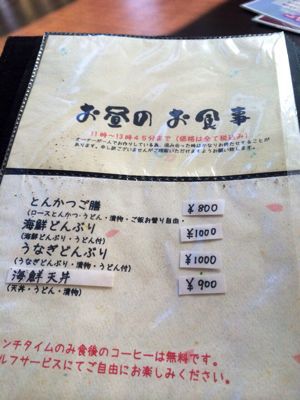 お昼のお食事
11時〜13時45分まで（価格は全て税込み）
オーナーが一人でお作りしている為、混み合った時はかなりお待たせすることが
あります。申し訳ございませんがご理解いただけますようお願い致します。
とんかつご膳 ¥800
(ロースとんかつ・うどん・漬物・ご飯お替り自由・
海鮮どんぶり ¥1000
(海鮮どんぶり・うどん付)
うなぎどんぶり ¥1000
(うなぎどんぶり・漬物・うどん付)
海鮮天丼 ¥900
(天丼・うどん・漬物)
ンチタイムのみ食後のコーヒーは無料です。
ルフサービスにてご自由にお楽しみください。